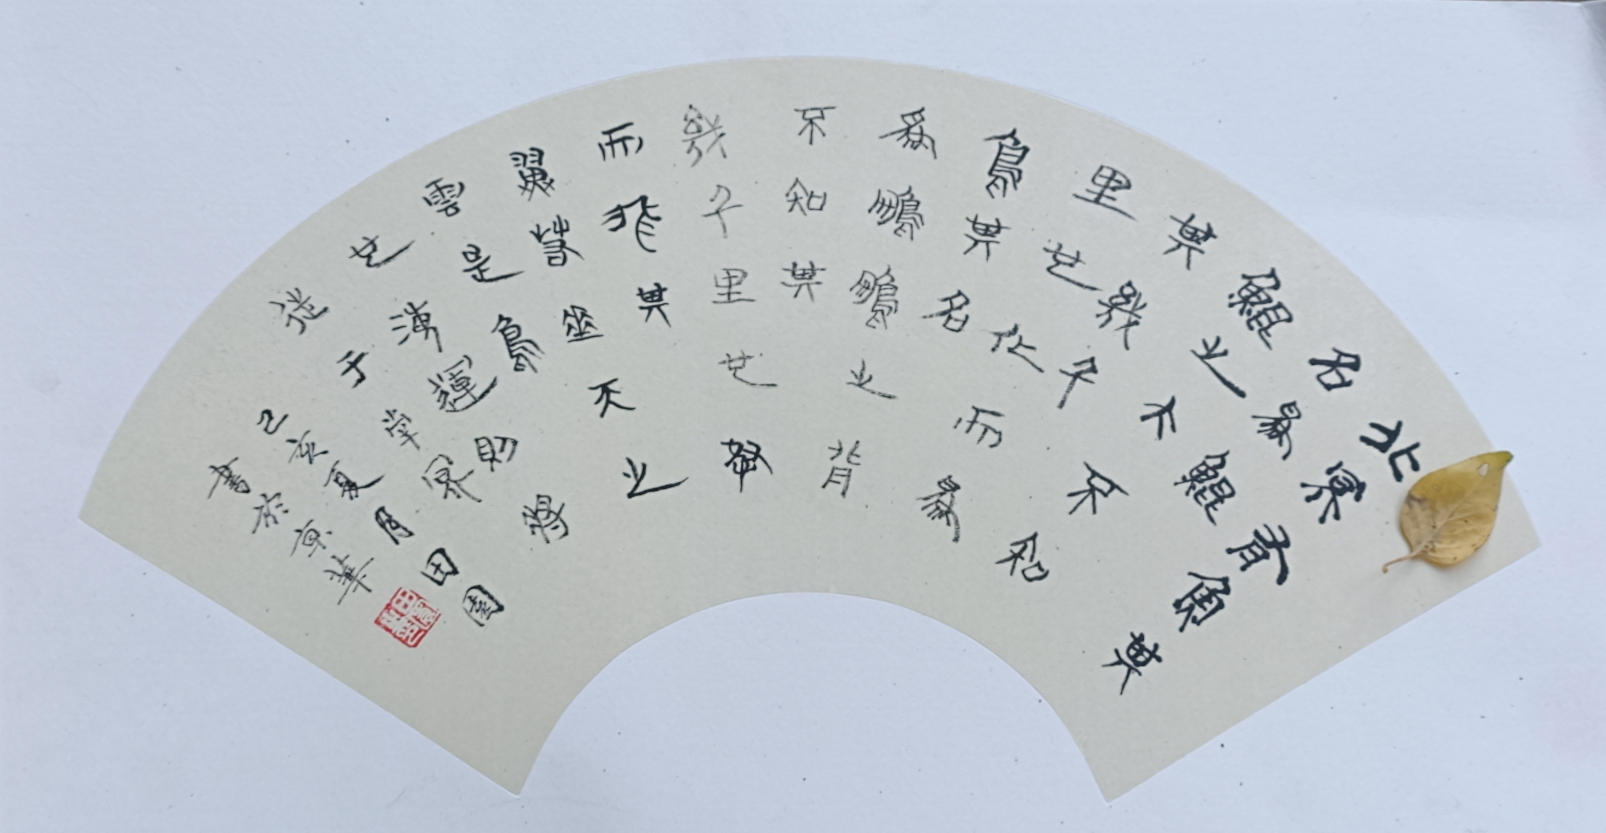 北冥有魚其
名為鯤
鯤之大不知
其幾千
里也化而為
鳥其名
為鵬鵬之背
不知其
幾千里也怒
而飛其
翼若垂天之
雲是鳥
也海運則將
徙于南冥
己亥夏月田園
書於京華